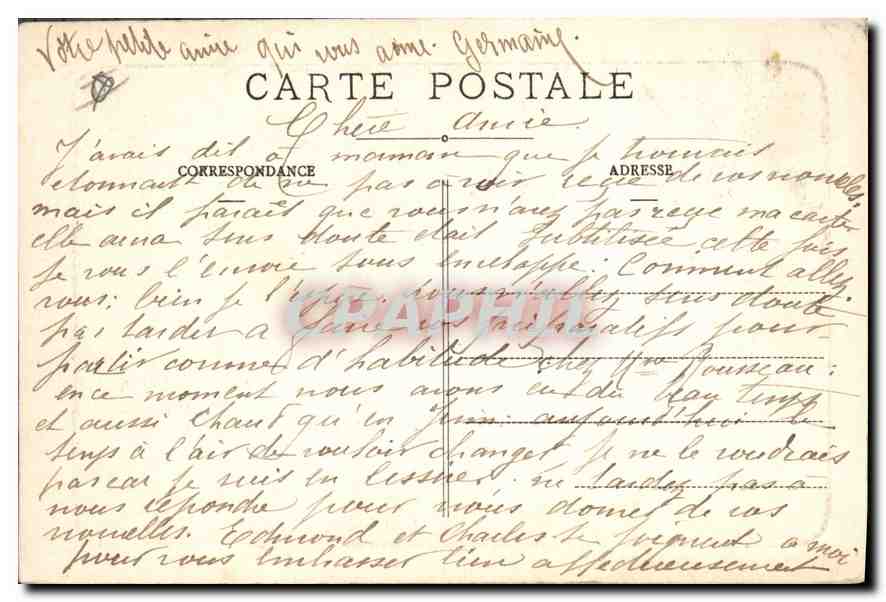 Votre petite amie qui vous aime. Germaine.
CARTE POSTALE
Chère Amie.
J'avais dit à maman que je trouvais
CORRESPONDANCE
ADRESSE
etonnant de ne pas avoir reçue de vos nouvelles.
mais il parait que vous n'avez pas reçue ma carte
elle aura sans doute était subtilisée cette fois
je vous l'envoie sous enveloppe. Comment allez
vous; bien je l'espère. vous n'allez sans doute
CPAPHIL
pas tarder a faire vos préparatifs pour
partir comme d'habitude chez Mme Rousseau;
en ce moment nous avons eu du beau temps
et aussi chaud qu'en Juin. aujourd'hui le
temps à l'air de vouloir changer je ne le voudrais
pas car je suis en lessive. ne tardez pas à
nous repondre pour nous donner de vos
nouvelles. Edmond et Charles se joignent a moi
pour vous embrasser bien affectueusement